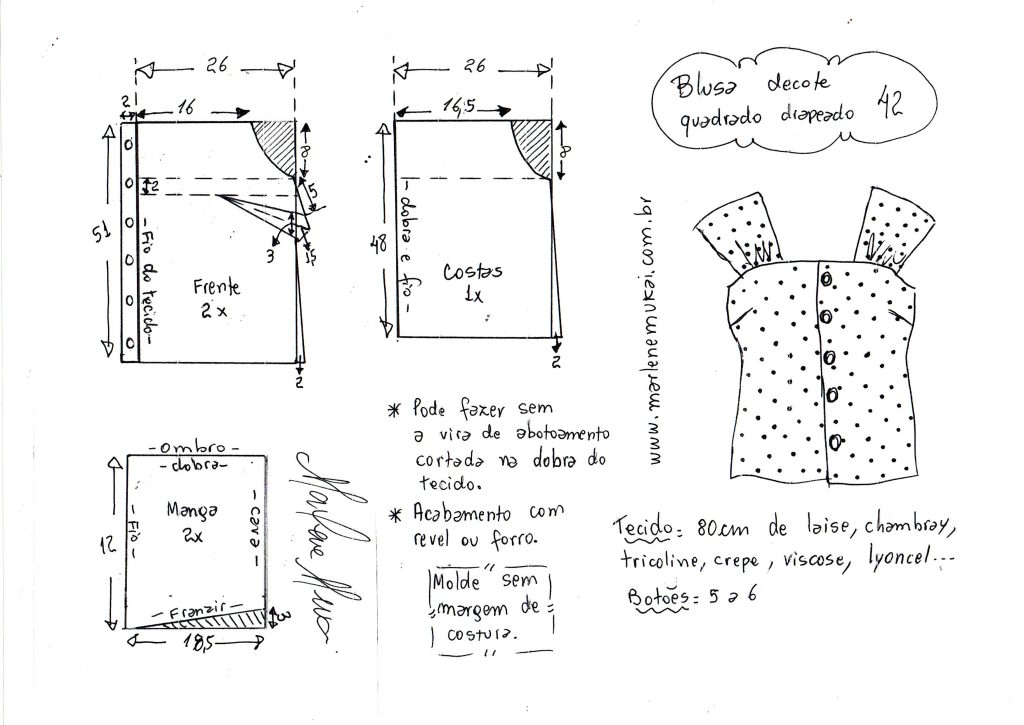 26
2
16
8
2
5
3
1,5
51
- Fio do tecido -
Frente
2x
2
26
16,5
8
48
- dobra e fio -
Costas
1x
2
Blusa decote
quadrado drapeado 42
www.marlenemukai.com.br
- ombro -
- dobra -
12
- Fio -
Manga
2x
- cava -
- Franzir -
3
18,5
Marlene Mukai
* Pode fazer sem
a vira de abotoamento
cortada na dobra do
tecido.
* Acabamento com
revel ou forro.
Molde sem
margem de
costura.
Tecido = 80cm de laise, chambray,
tricoline, crepe, viscose, lyoncel...
Botões = 5 a 6